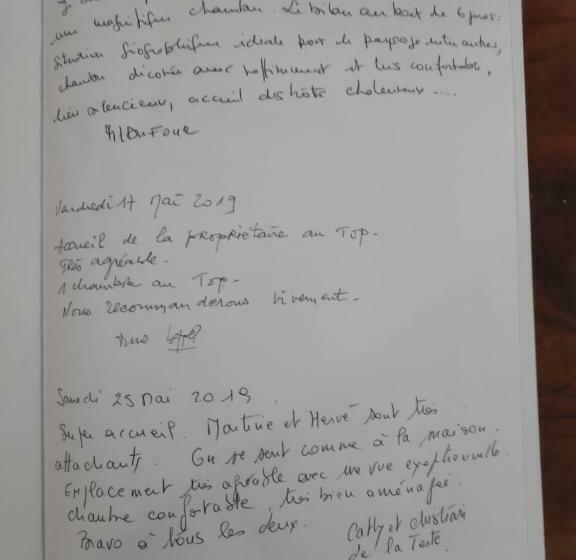 un magnifique chambre. Le bilan au bout de 6 jours:
situation géographique idéale point de paysage entre autres,
chambre décorée avec raffinement et très confortable,
lieu silencieux, accueil des hôtes chaleureux....
Vendredi 17 Mai 2019
Accueil de la propriétaire au Top-
Très agréable-
1 chambre au Top-
Nous recommanderons vivement-
Samedi 25 Mai 2019.
Super accueil. Martine et Hervé sont très
attachants. On se sent comme à la maison.
Emplacement très agréable avec une vue exeptionnelle.
chambre confortable, très bien aménagée.
Bravo à tous les deux.
Cathy et Christian
de la Teste